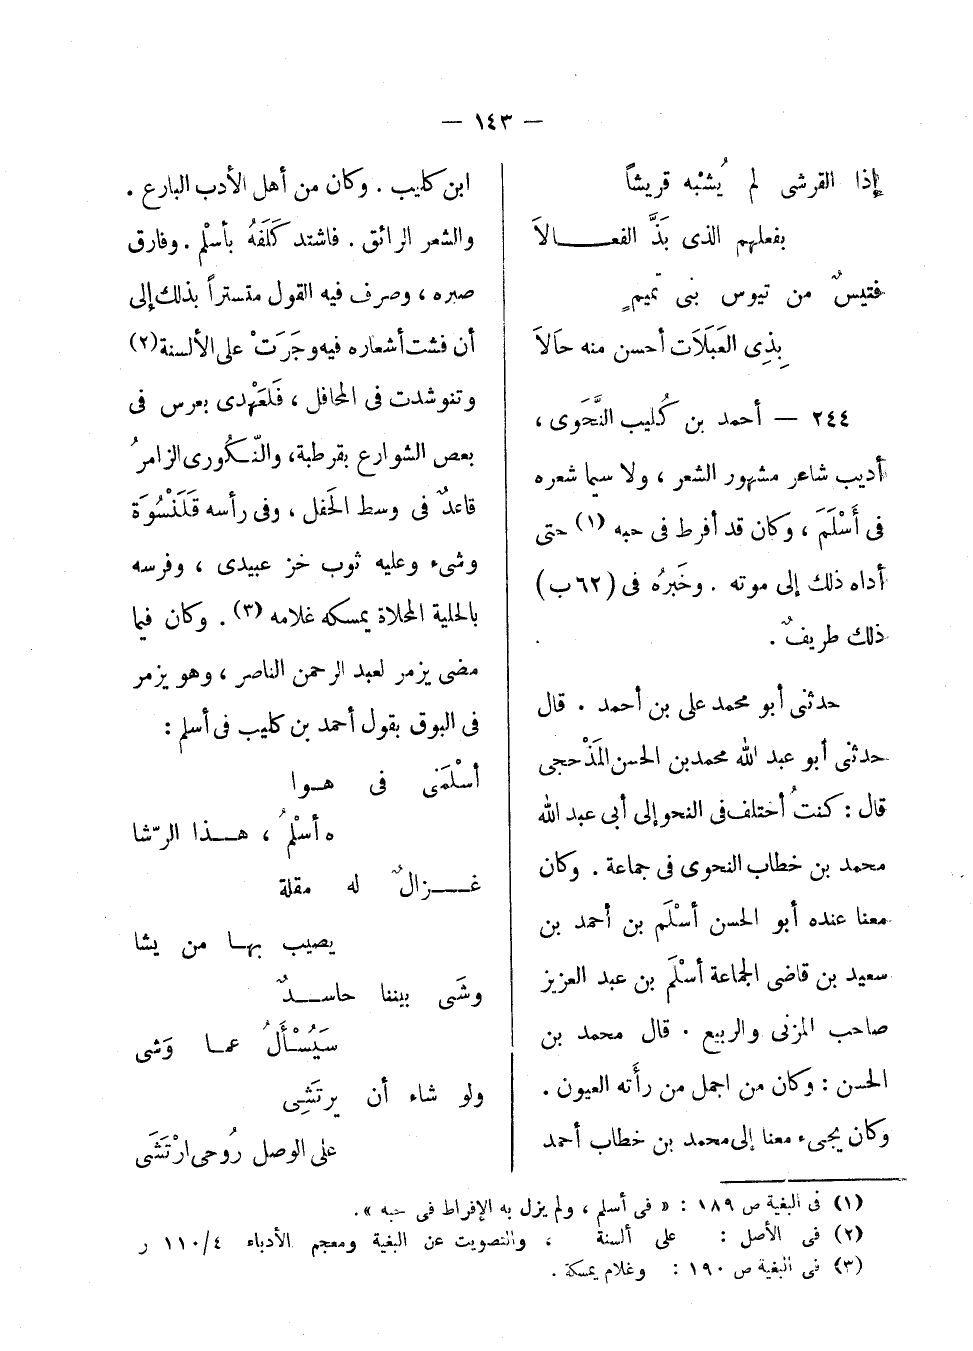 — ١٤٣ —
إذا القرشى لم يُشبْه قريشاً
بفعلهم الذى بَذَّ الفعـــالاَ
فتيسٌ من تيوس بنى تميمٍ
بِذِى العَبَلَات أحسن منه حَالاَ
٢٤٤ — أحمد بن كُليب النَّحَوى ،
أديب شاعر مشهور الشعر ، ولا سيما شعره
فى أَسْلَمَ ، وكان قد أفرط فى حبه (١) حتى
أداه ذلك إلى موته . وخَبرُه فى (٦٢ ب)
ذلك طريفٌ .
حدثنى أبو محمد على بن أحمد . قال
حدثنى أبو عبد الله محمد بن الحسن المَذْحجى
قال : كنتُ أختلف فى النحو إلى أبى عبد الله
محمد بن خطاب النحوى فى جماعة . وكان
معنا عنده أبو الحسن أسْلَم بن أحمد بن
سعيد بن قاضى الجماعة أسْلَم بن عبد العزيز
صاحب المزنى والربيع . قال محمد بن
الحسن : وكان من اجمل من رأَته العيون .
وكان يجىء معنا إلى محمد بن خطاب أحمد
ابن كليب . وكان من أهل الأدب البارع .
والشعر الرائق . فاشتد كَلَفَهُ بأسْلم . وفارق
صبره ، وصرف فيه القول متستراً بذلك إلى
أن فشت أشعاره فيه وجَرَتْ على الألسنة (٢)
وتنوشدت فى المحافل ، فَلَعَهْدى بعرس فى
بعص الشوارع بقرطبة، والنّكُورى الزامرُ
قاعدٌ فى وسط الحَفل ، وفى رأسه قَلَنْسُوَة
وشىء وعليه ثوب خز عبيدى ، وفرسه
بالحلية المحلاة يمسكه غلامه (٣) . وكان فيما
مضى يزمر لعبد الرحمن الناصر ، وهو يزمر
فى البوق بقول أحمد بن كليب فى أسلم :
أسْلَمَنى فى هـوا
ه أسْلمُ ، هــذا الرّشا
غـــزالٌ له مقلة
يصيب بهـا من يشا
وشَى بيننا حاســدٌ
سَيُسْـأَلُ عمـا وَشى
ولو شاء أن يرتَشِى
على الوصل رُوحى ارْتَشَى
(١) فى البغية ص ١٨٩ : « فى أسلم ، ولم يزل به الإفراط فى حبه ».
(٢) فى الأصل : على ألسنة ، والتصويت عن البغية ومعجم الأدباء ٤/ ١١٠ ر
(٣) فى البغية ص ١٩٠ : وغلام يمسكة .